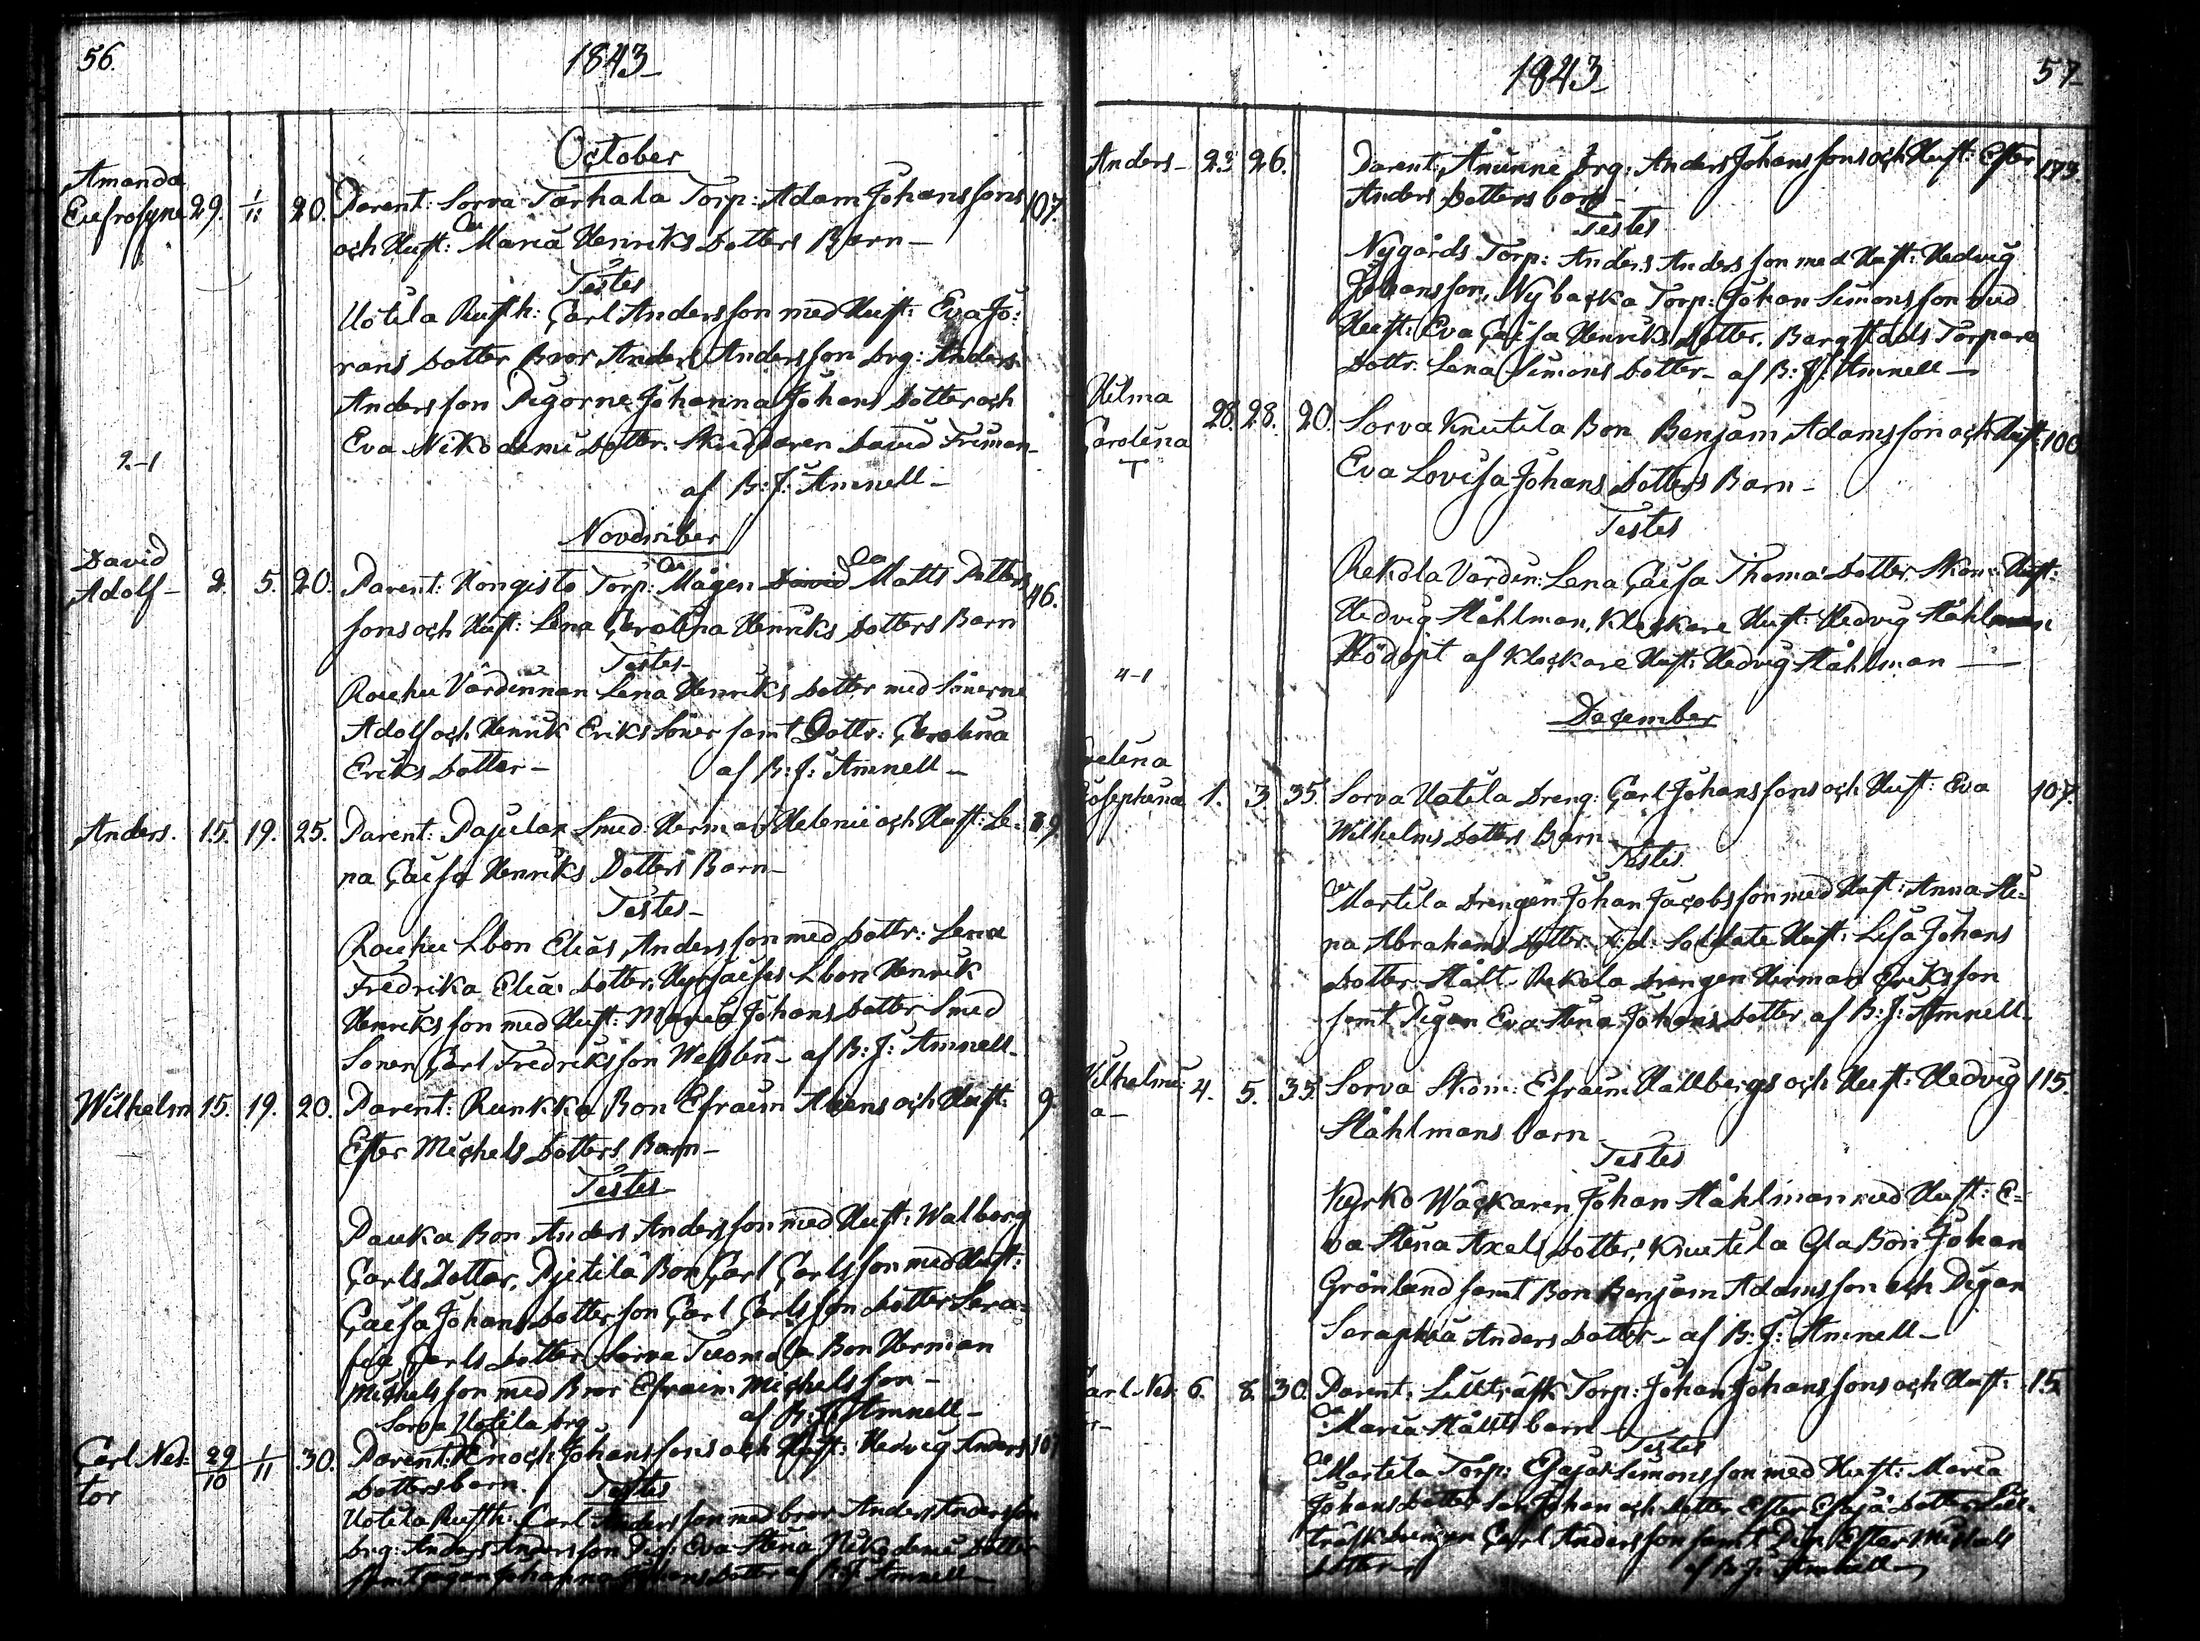 56.
1843
October
Amanda
Eufrosyne 29. 1/11 20. Parent: Sorva Tarhala Torp: Adam Johanssons 107.
och Hust: Maria Henriks Dotters Barn
Testes
Uotila Rusth: Carl Andersson med Hust: Eva Jö:
rans Dotter Bror Anders Andersson drg: Anders
Andersson Pigorne Johanna Johans Dotter och
Eva Nikodemi Dotter. Skräddaren David Friman
af B: J: Amnell
2-1
November
David
Adolf 2. 5. 20. Parent: Hongisto Torp: Mågen David Matts Petters 46.
sons och Hust: Lena Carolina Henriks Dotters Barn
Testes
Rouhu Värdinnan Lena Henriks Dotter med Sönerne
Adolf och Henrik Eriks Söner samt Dottr: Carolina
Eriks Dotter af B: J: Amnell
Anders. 15. 19. 25. Parent: Pajulax Smed: Herman Helenii och Hust: Le:
na Caisa Henriks Dotters Barn
Testes
Rouhu Lbon Elias Andersson med Dottr: Lena
Fredrika Eliæ Dotter, Lbon Henrik
Henriksson med Hust: Maria Johans Dotter Smed
Sonen Carl Fredriksson af B: J: Amnell
Wilhelm 15. 19. 20. Parent: Runkka Bon Efraim och Hust: 9.
Ester Michels Dotters Barn
Testes
Pauka Bon Anders Andersson med Hust: Walborg
Carls Dotter, Pjetilä Bon Carl Carlsson med Hust:
Caisa Johans Dotter son Carl Carlsson Dotter Sera=
fia Carls Dotter Sorva Tuomola Bon Herman
Michelsson med Bror Efraim Michelsson
Sorva Uotila drg af B: J: Amnell
Carl Nes: 29/10 1/11 30. Parent: Enoch Johanssons och Hust: Hedvig Anders
tor Dotters barn. Testes
Uotila Rusth: Carl Andersson med bror Anders Andersson
drg: Anders Andersson Pig: Eva Stina Nikodemi Dotter
samt pigan Johanna Johans Dotter af B: J: Amnell
1843
57
Anders 23 26. Parent, drg: Anders Johanssons och Hust: Ester 173.
Anders Dotters barn
Testes
Nygårds Torp: Anders Andersson med Hust: Hedvig
Johansson, Nybacka Torp: Johan Simonsson med
Hust: Eva Caisa Henriks Dotter, Bargstads Torpare
Dottr: Lena Simons Dotter af B: J: Amnell
Hilma
Carolina 28. 28. 20. Sorva Knutila Bon Benjam Adamsson och Hust: 100
Eva Lovisa Johans Dotters Barn
Testes
Rekola Värdin: Lena Caisa Thomæ Dotter. Skom: Hust:
Hedvig Ståhlman, Klockare Hust: Hedvig Ståhlman
Nödöpt af Klockare Hust: Hedvig Ståhlman
4-1
December
Josephina 1. 3. 35. Sorva Uotila Dreng: Carl Johanssons och Hust: Eva 107.
Wilhelms Dotters Barn
Testes
Martila Drengen Johan Jacobsson med Hust: Anna Ste:
na Abrahams Dotter. Soldate Hust: Lisa Johans
Dotter Stålt Rekola Drengen Herman Eriksson
samt Pigan Eva Stina Johans Dotter af B: J: Amnell
Wilhelmi
a 4. 5. 35. Sorva Skom: Efraim Hallbergs och Hust: Hedvig 115.
Ståhlmans barn
Testes
Kyrko Wäckaren Johan Ståhlman med Hust: E=
va Stina Axels Dotter, Knutila Johan
Grönlund samt Bon Benjam Adamsson och Pigan
Seraphia Anders Dotter af B: J: Amnell
Carl Nes: 6. 8. 30. Parent: Lillträsk Torp: Johan Johanssons och Hust: 15.
Maria Stålts barn
Testes
Martila Torp: Esajas Simonsson med Hust: Maria
Johans Dotter son Johan och Dotter Ester Esajæ Dotter Lill=
träsk Drengen Carl Andersson samt Pigan Ester Michels
Dotter af B: J: Amnell